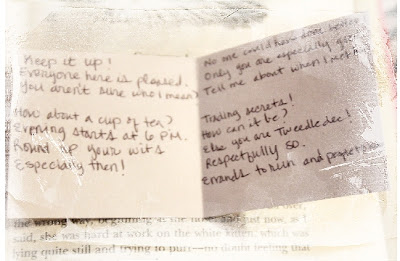 Keep it up!
Everyone here is pleased.
You aren't sure who I mean?
How about a cup of tea?
Evening starts at 6 P.M.
Round up your wits
Especially then!
No one could have done better
Only you are especially
Tell me about when I met
Trading secrets!
How can it be?
Else you are Tweedle-dee!
Respectfully SD.
Errands to run and
the wrong way, beginning
now, as I
said, she was hard at work on the white kitten, which was
lying quite still and trying to purr—no doubt feeling that